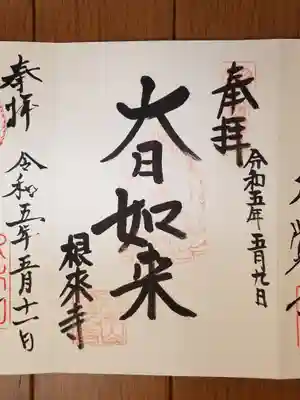 奉拝
令和五年五月九日
大日如来
根來寺
奉拝
令和五年五月十一日